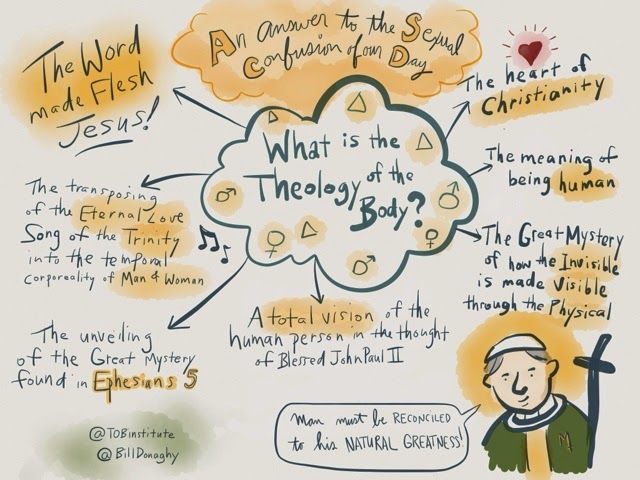 An answer to the Sexual
Confusion of our Day
The Word
made Flesh
Jesus!
The heart of
Christianity
What is the
Theology of the
Body?
The meaning of
being human
The transposing
of the Eternal Love
Song of the Trinity
into the temporal
corporeality of Man & Woman
The Great Mystery
of how the Invisible
is made Visible
through the Physical
The unveiling
of the Great Mystery
found in Ephesians 5
A total vision of the
human person in the thought
of Blessed John Paul II
Man must be RECONCILED
to his NATURAL GREATNESS!
M
@TOBinstitute
@BillDonaghy